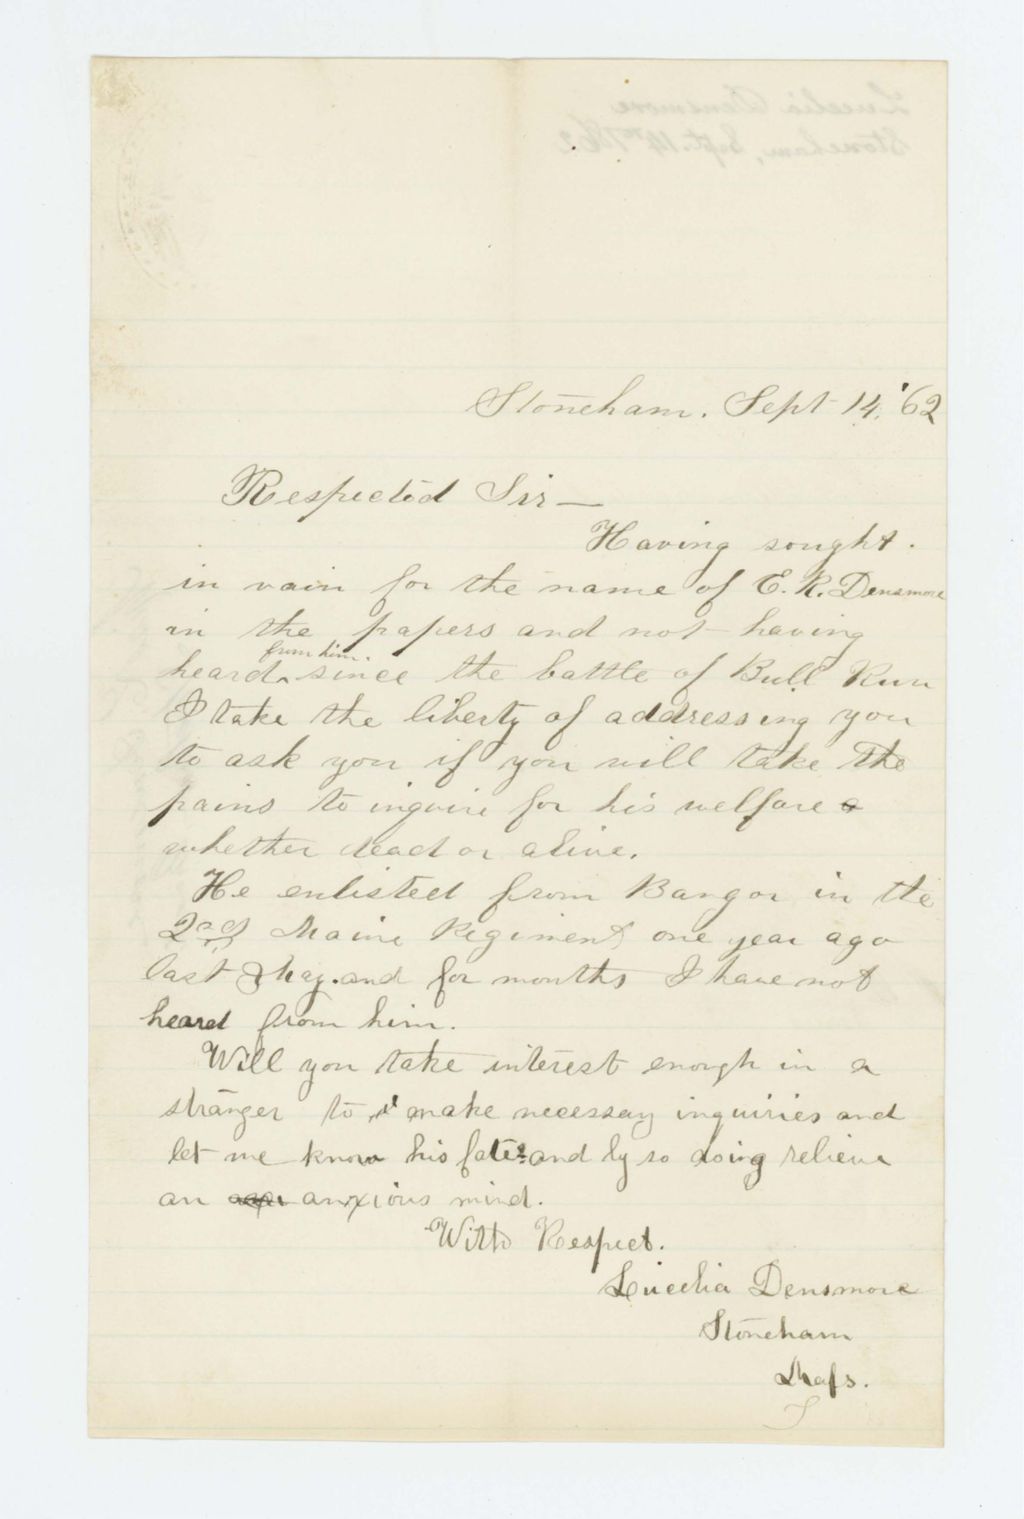 Stoneham. Sept 14. '62
Respected Sir —
Having sought.
in vain for the name of E. R. Densmore
in the papers and not having
from him.
heard^ since the battle of Bull Run
I take the liberty of addressing you
to ask you if you will take the
pains to inquire for his welfare
whether dead or alive.
He enlisted from Bangor in the
2nd Maine Regiment one year ago
last May. and for months I have not
heard from him.
Will you take interest enough in a
stranger to make necessay inquiries and
let me know his fate. and by so doing relieve
an anxious mind.
With Respect.
Lucelia Densmore
Stoneham
Mass.
Lucelia Densmore
Stoneham, Sept. 14th 1862